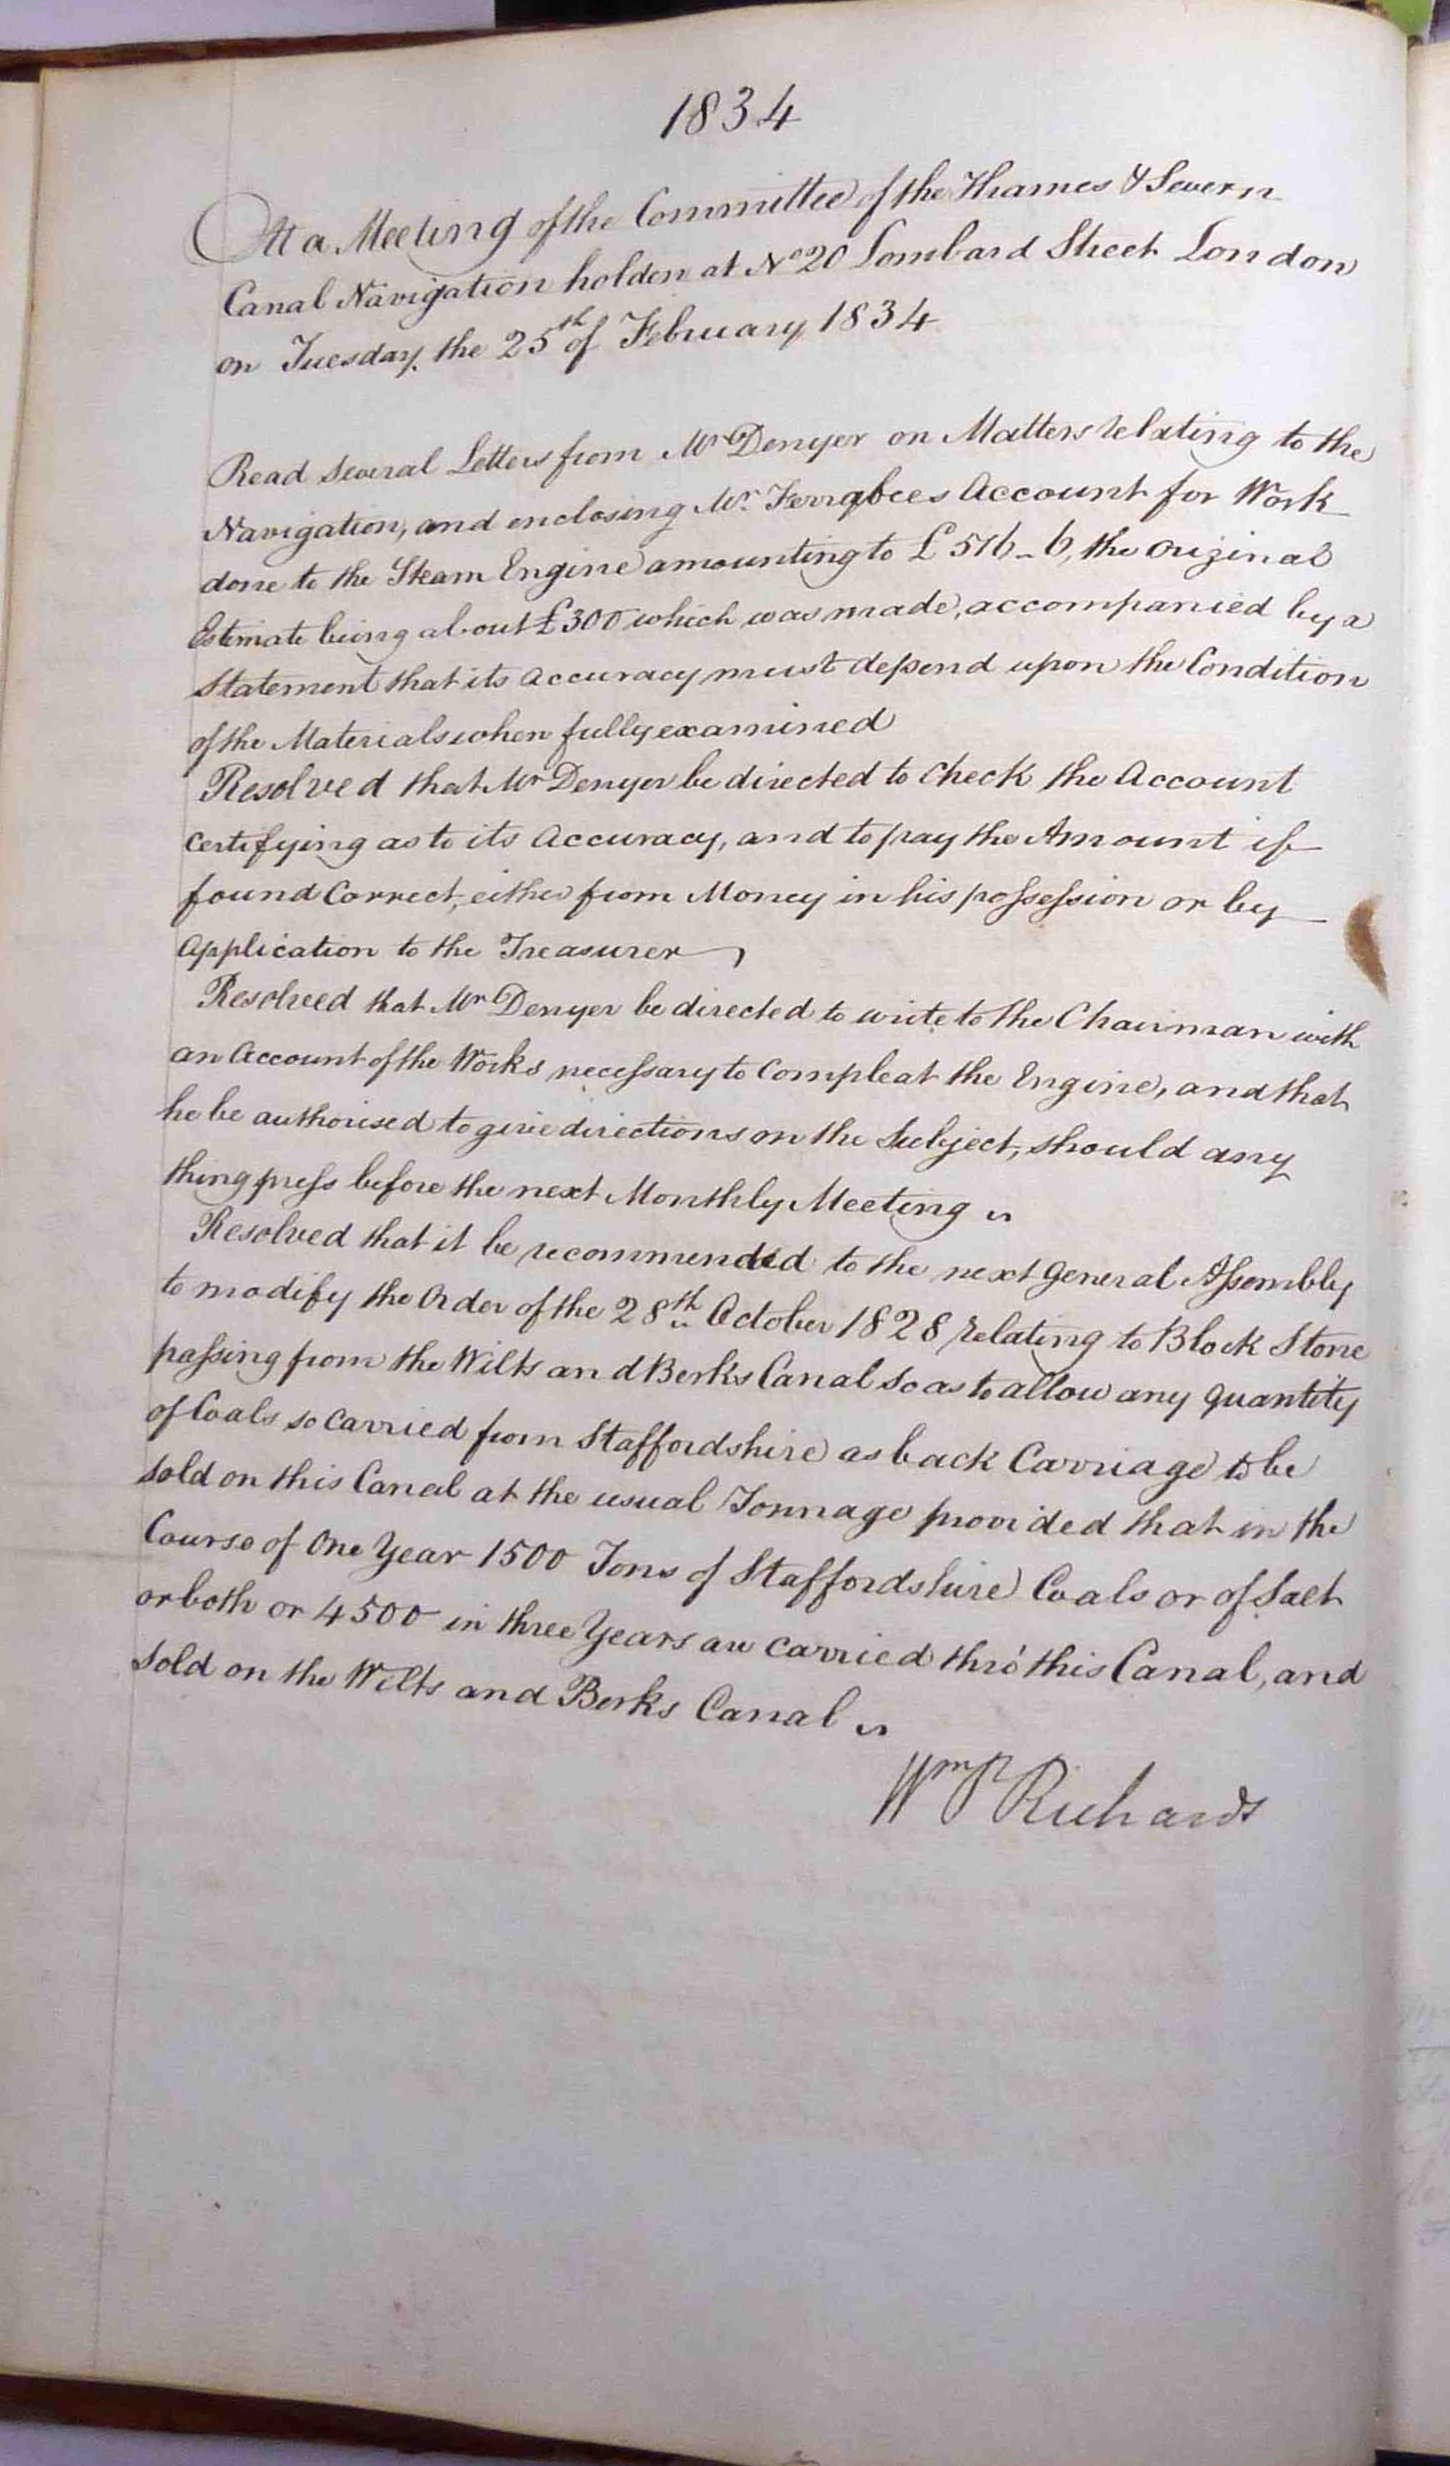 1834
At a Meeting of the Committee of the Thames & Severn
Canal Navigation holden at No 20 Lombard Street London
on Tuesday the 25th of February 1834
Read several Letters from Mr Denyer on Matters relating to the
Navigation, and enclosing Mr. Ferrabees Account for Work
done to the Steam Engine amounting to £516-6, the Original
Estimate being about £300 which was made, accompanied by a
Statement that its accuracy must depend upon the Condition
of the Materials when fully examined
Resolved that Mr Denyer be directed to Check the Account
certifying as to its accuracy, and to pay the Amount if
found Correct, either from Money in his possession or by
Application to the Treasurer
Resolved that Mr Denyer be directed to write to the Chairman with
an Account of the Works necessary to Compleat the Engine, and that
he be authorised to give directions on the Subject, should any
thing press before the next Monthly Meeting
Resolved that it be recommended to the next General Assembly
to modify the Order of the 28th October 1828 relating to Block Stone
passing from the Wilts and Berks Canal so as to allow any quantity
of Coals so carried from Staffordshire as back Carriage to be
sold on this Canal at the usual Tonnage provided that in the
Course of One Year 1500 Tons of Staffordshire Coals or of Salt
or both or 4500 in three Years are carried thro' this Canal, and
sold on the Wilts and Berks Canal
Wm P Richards